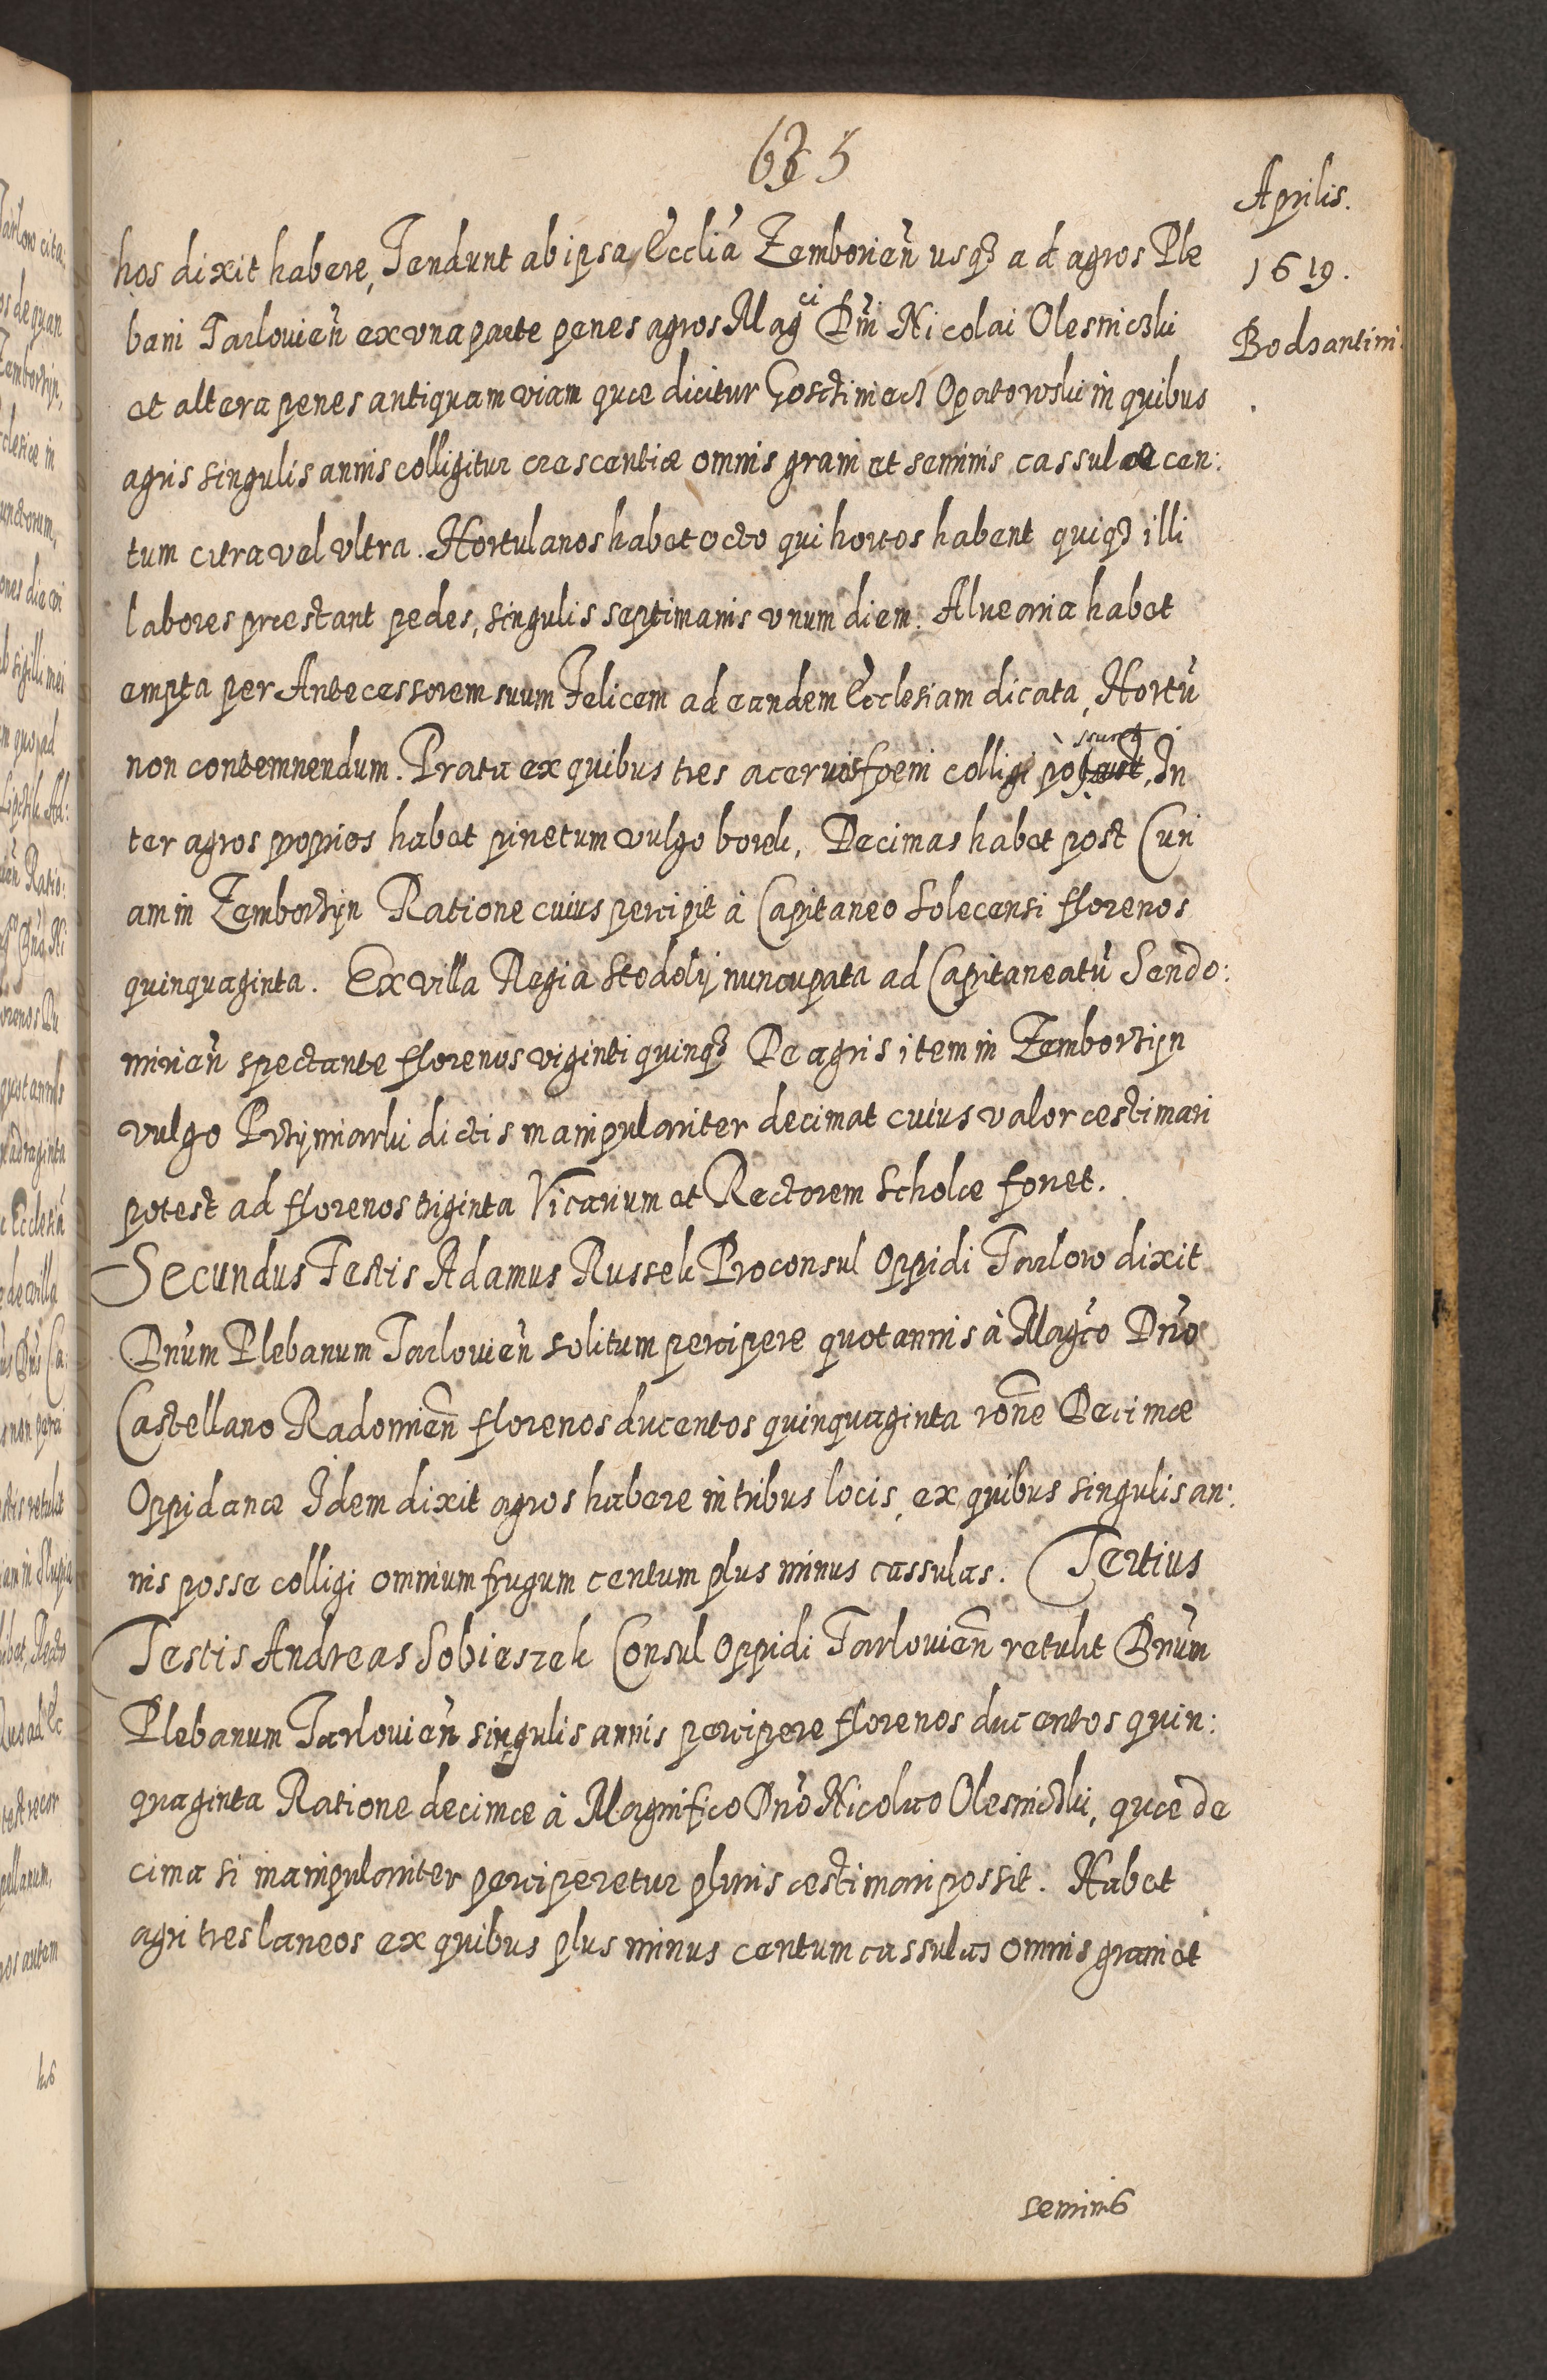 635
Aprilis.
1619.
Bodzantini.
hos dixit habere, Tendunt ab ipsa Eccliã Zemborien̄ usq₃ ad agros Ple
bani Tarlouien̄ ex una parte penes agros Magci Dn̄i Nicolai Olesniczki
et altera penes antiquam viam quæ dicitur Gosctiniecz Opatowski in quibus
agris singulis annis colligitur crescentiæ omnis grani et seminis cassulæ cen:
tum citra vel ultra. Hortulanos habet octo qui hortos habent quiq₃ illi
labores præstant pedes, singulis septimanis unum diem. Aluearia habet
empta per Antecessorem suum Felicem ad eandem Ecclesiam dicata, Hortū
non contemnendum. Prata ex quibus tres acerui foeni colligi possunt. In
ter agros proprios habet pinetum vulgo borek. Decimas habet post Curi
am in Zemborzyn Ratione cuius percipit à Capitaneo Solecensi florenos
quinquaginta. Ex villa Regia Stodoly nuncupata ad Capitaneatū Sendo:
mirien̄ spectante florenos viginti quinq₃ De agris item in Zemborzyn
vulgo Przymiarki dictis manipulariter decimat cuius valor æstimari
potest ad florenos triginta Vicarium et Rectorem Scholæ fouet.
Secundus Testis Adamus Russek Proconsul Oppidi Tarlow dixit
Dnūm Plebanum Tarlouien̄ solitum percipere quotannis à Magco Dnō
Castellano Radomien̄ florenos ducentos quinquaginta rōne Decimæ
Oppidanæ Idem dixit agros habere in tribus locis, ex quibus singulis an:
nis posse colligi omnium frugum centum plus minus cassulas. Tertius
Testis Andreas Sobieszek Consul Oppidi Tarlouien̄ retulit Dnūm
Plebanum Tarlouien̄ singulis annis percipere florenos ducentos quin:
quaginta Ratione decimæ à Magnifico Dnō Nicolao Olesniczki, quæ de
cima si manipulariter perciperetur pluris æstimari possit. Habet
agri tres laneos ex quibus plus minus centum cassulas omnis grani et
seminis